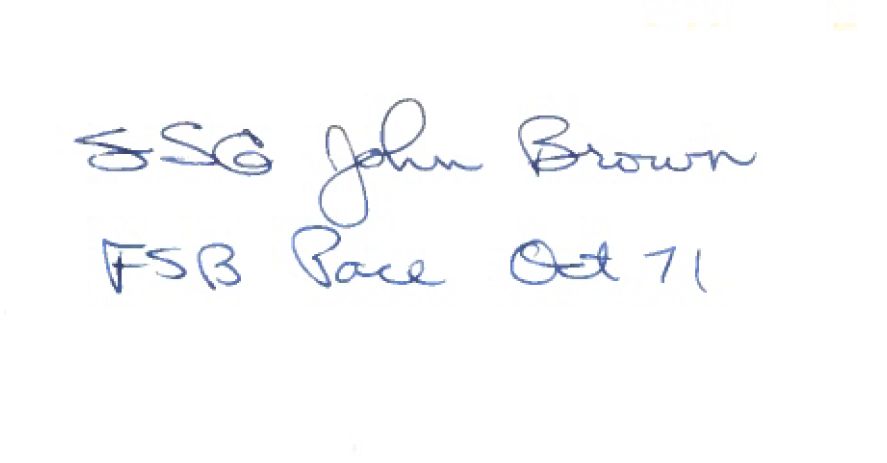 SSG John Brown
FSB Pace Oct 71